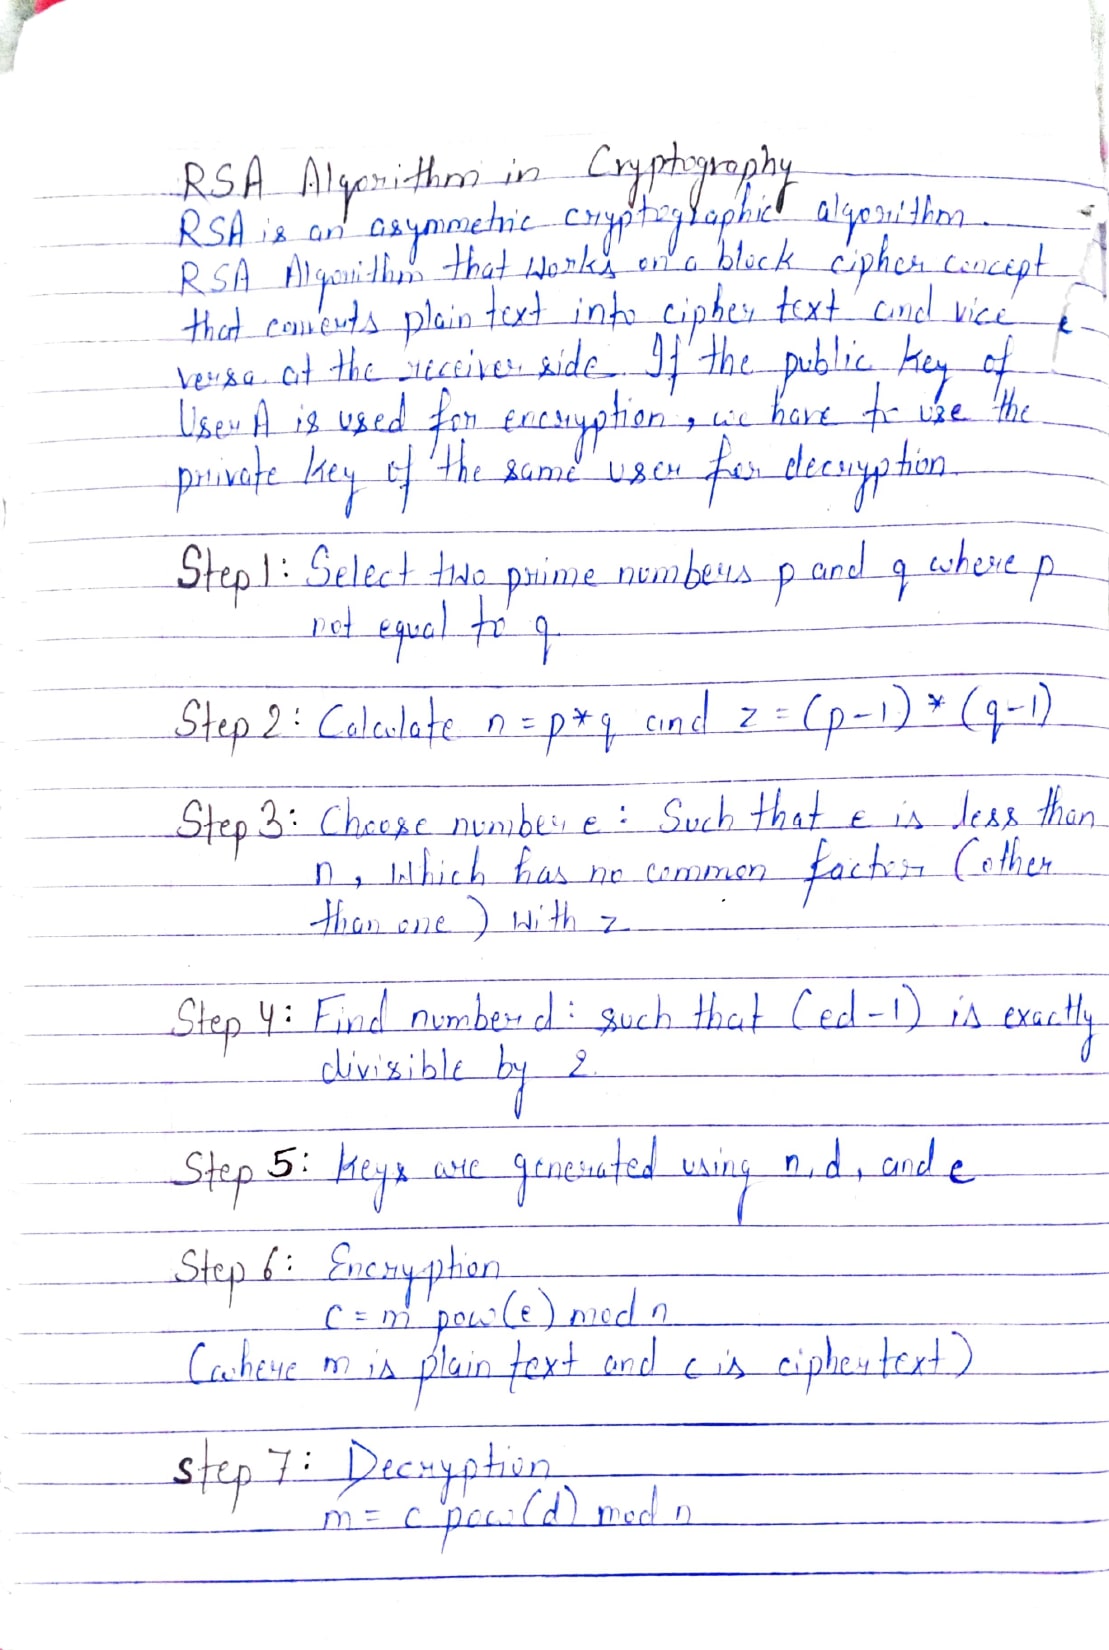 RSA Algorithm in Cryptography
RSA is an asymmetric cryptographic algorithm.
RSA Algorithm that works on a block cipher concept
that converts plain text into cipher text and vice
versa at the receiver side. If the public key of
User A is used for encryption, we have to use the
private key of the same user for decryption.
Step 1: Select two prime numbers p and q where p
not equal to q.
Step 2: Calculate n = p*q and z = (p-1) * (q-1)
Step 3: Choose number e: Such that e is less than
n, which has no common factor (other
than one) with z
Step 4: Find number d: such that (ed-1) is exactly
divisible by 2.
Step 5: Keys are generated using n, d, and e
Step 6: Encryption
c = m pow(e) mod n
(where m is plain text and c is ciphertext)
step 7: Decryption
m = c pow(d) mod n